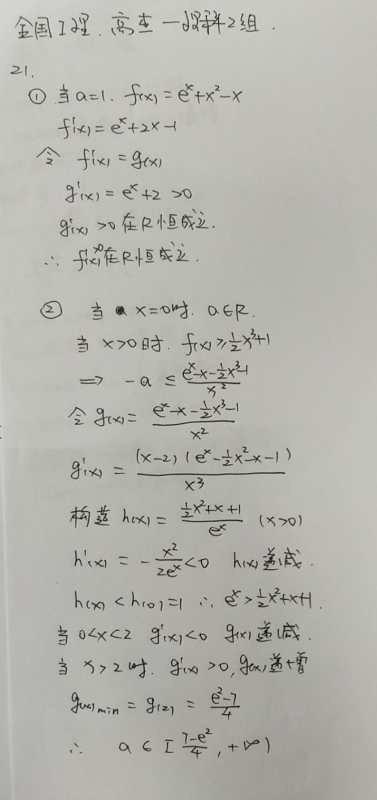 全国I理. 高三一
21.
① 当a=1. f(x)=e^x+x²-x
f'(x)=e^x+2x-1
令 f'(x)=g(x)
g'(x)=e^x+2>0
g'(x)>0在R恒成立.
∴ f'(x)>0在R恒成立.
② 当 x=0时. a∈R.
当 x>0时. f(x)≥½x³+1
⟹ -a ≤ (e^x-x-½x³-1)/x²
令g(x)= (e^x-x-½x³-1)/x²
g'(x)= (x-2)(e^x-½x²-x-1)/x³
构造 h(x)= (½x²+x+1)/e^x (x>0)
h'(x)= -x²/2e^x<0 h(x)递减.
h(x)<h(0)=1 ∴ e^x>½x²+x+1.
当 0<x<2 g'(x)<0 g(x)递减.
当 x>2时. g'(x)>0, g(x)递增
g(x)min=g(2)= (e²-7)/4
∴ a∈[(7-e²)/4, +∞)